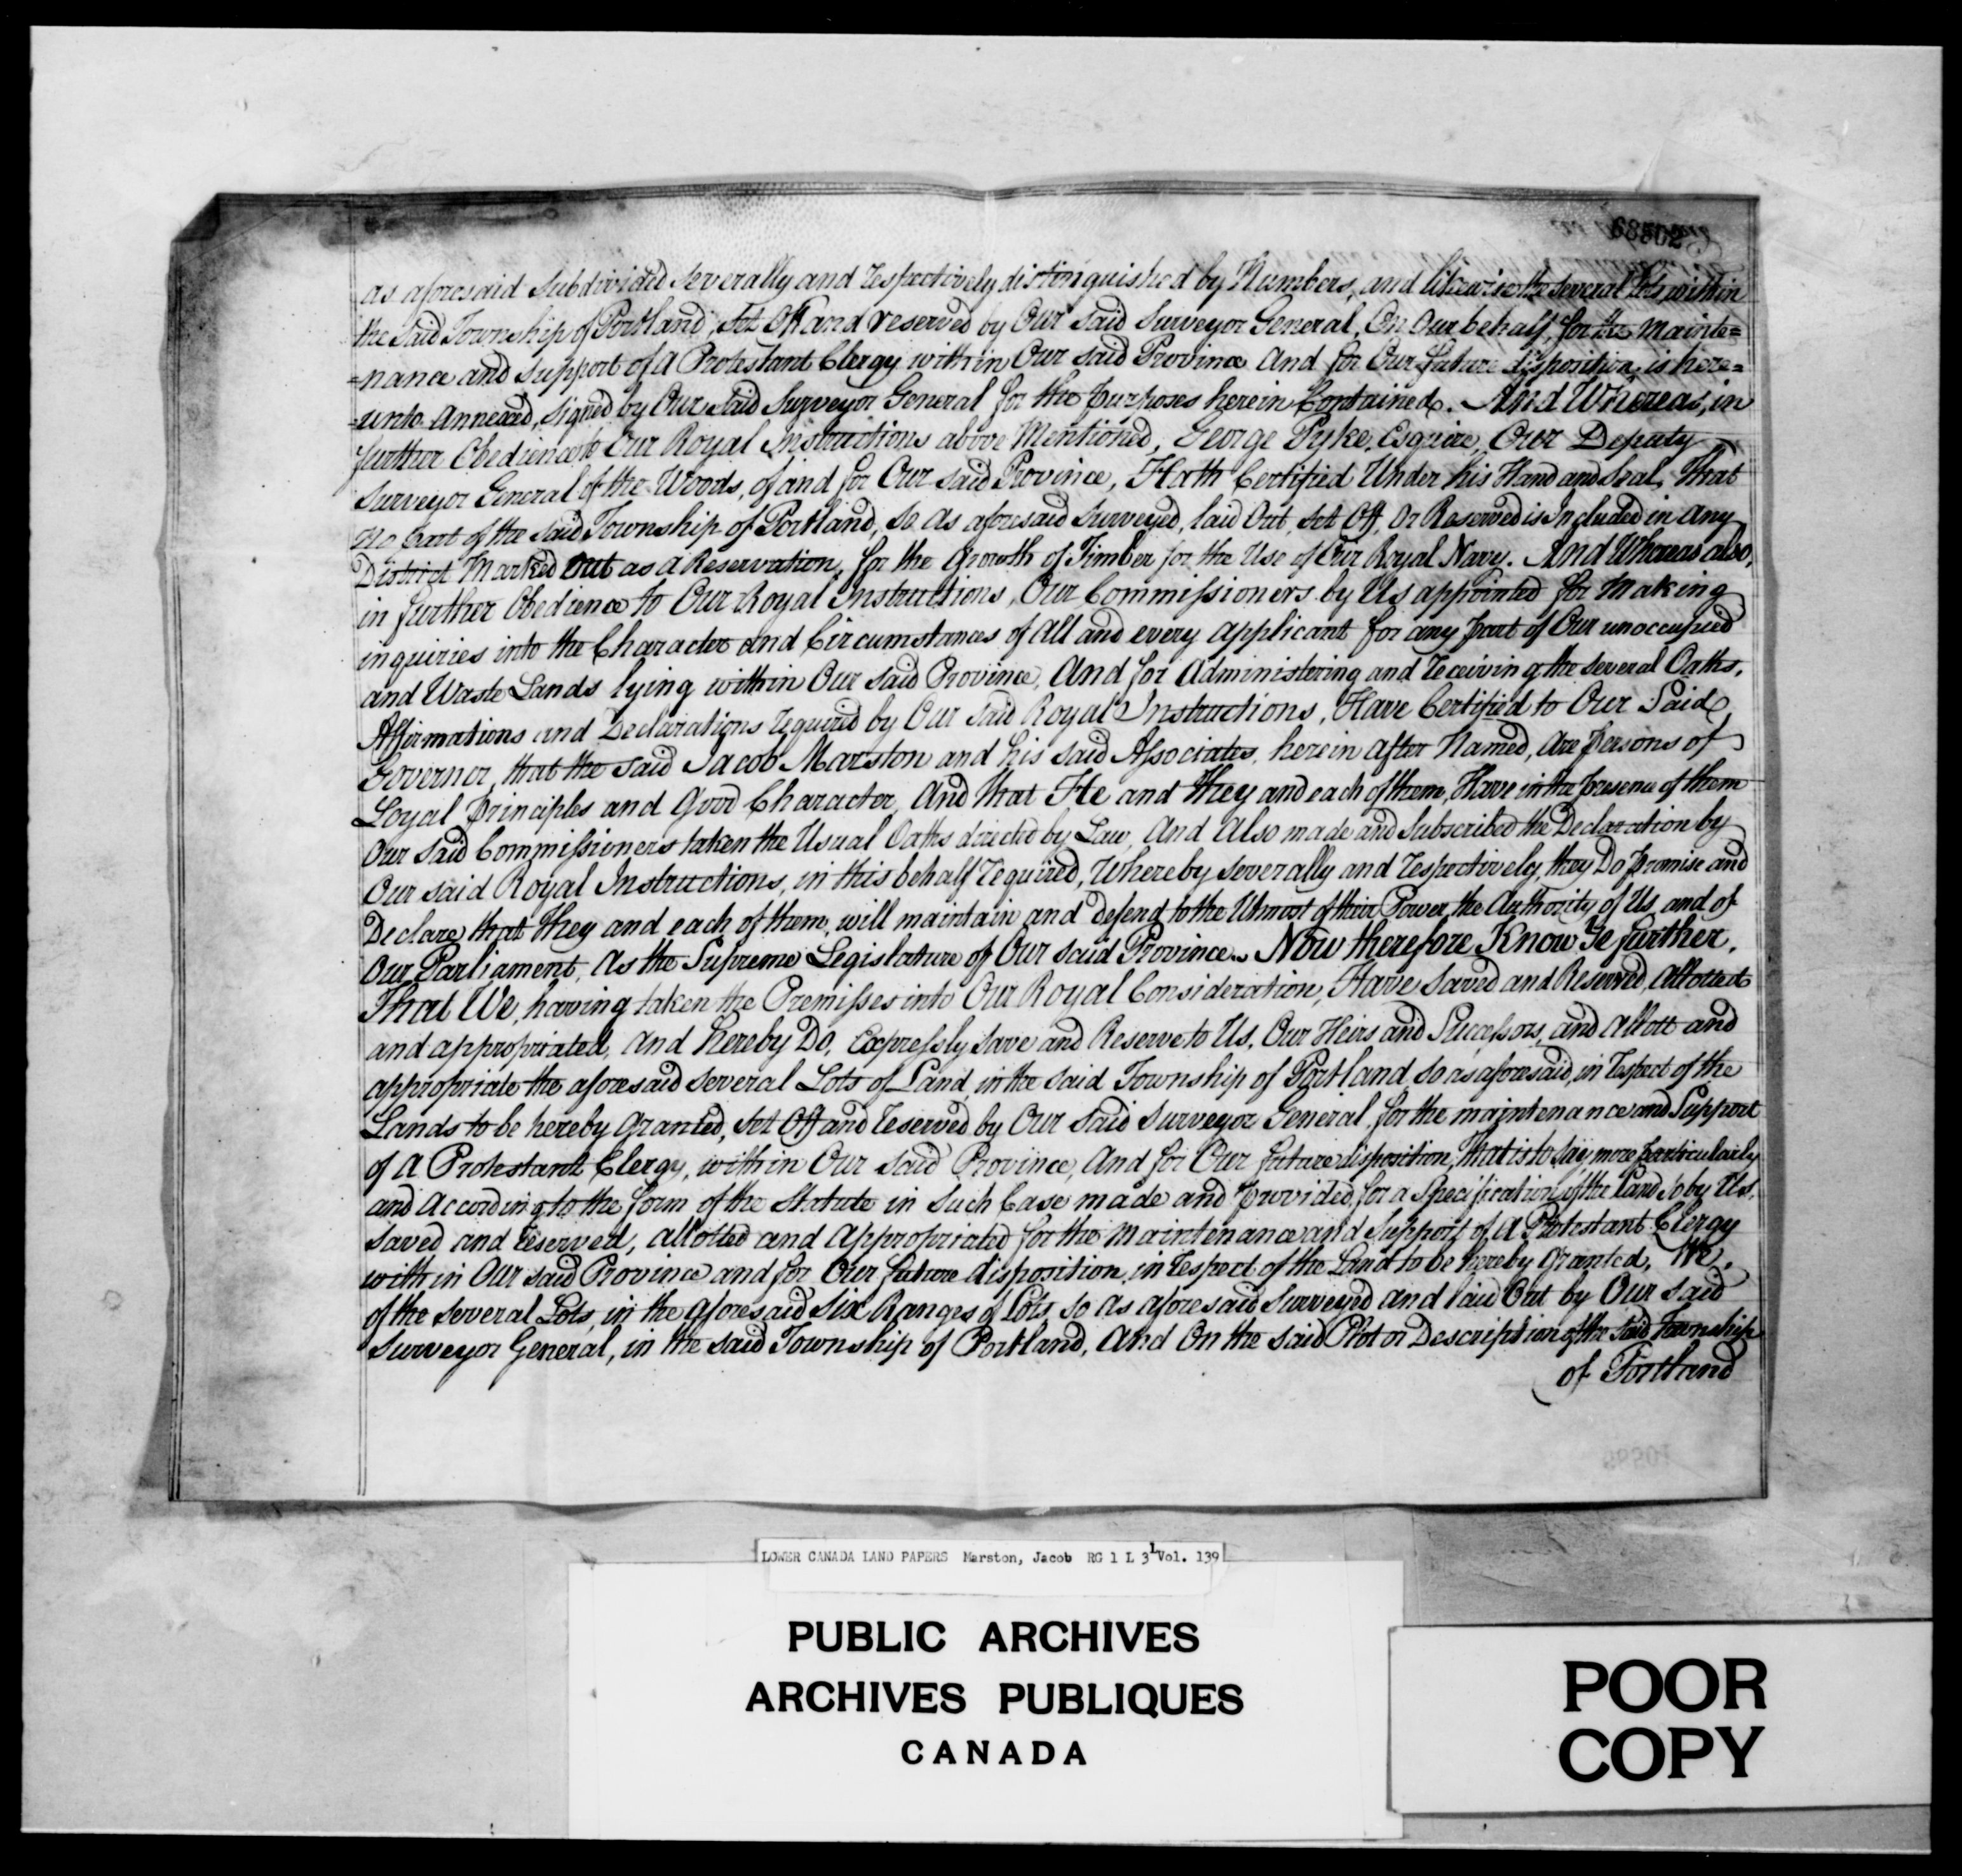 68502
as aforesaid subdivided severally and respectively distinguished by Numbers, and likewise the several lots within
the said Township of Portland, set Off and reserved by Our said Surveyor General, On Our behalf, for the Mainte=
=nance and support of A Protestant Clergy within Our said Province And for Our future disposition, is here=
=unto Annexed, signed by Our said Surveyor General for the purposes herein Contained. And Whereas, in
further Obedience to Our Royal Instructions above Mentioned, George Pyke, Esquire, Our Deputy
Surveyor General of the Woods, of and for Our said Province, Hath Certified Under his Hand and Seal, That
No part of the said Township of Portland, so as aforesaid Surveyed, laid Out, set Off, Or Reserved is Included in Any
District Marked Out as a Reservation, for the Growth of Timber for the Use of Our Royal Navy. And Whereas also,
in further Obedience to Our Royal Instructions, Our Commissioners by Us appointed for Making
inquiries into the Character and Circumstances of All and every Applicant for any part of Our unoccupied
and Waste Lands lying within Our said Province, And for Administering and receiving the several Oaths,
Affirmations and Declarations required by Our said Royal Instructions, Have Certified to Our Said
Governor, that the said Jacob Marston and his said Associates, herein after Named, are persons of
Loyal principles and Good Character, And that He and they and each of them, Have in the presence of them
Our said Commissioners taken the Usual Oaths directed by Law, And Also made and Subscribed the Declaration by
Our said Royal Instructions, in this behalf required, Whereby severally and respectively, they Do promise and
Declare that they and each of them, will maintain and defend to the Utmost of their Power, the Authority of Us and of
Our Parliament, As the Supreme Legislature of Our said Province. Now therefore Know Ye further,
That We, having taken the Premisses into Our Royal Consideration, Have Saved and Reserved, allotted
and appropriated, And hereby Do, Expressly save and Reserve to Us, Our Heirs and Successors, and Allott and
appropriate the aforesaid several Lots of Land, in the said Township of Portland, so as aforesaid, in respect of the
Lands to be hereby Granted, set Off and reserved by Our said Surveyor General, for the maintenance and Support
of A Protestant Clergy, within Our said Province, And for Our future disposition, That is to say, more particularly
and According to the form of the Statute in such Case made and Provided, for a Specification of the Land so by Us,
saved and reserved, allotted and Appropriated for the Maintenance and support of A Protestant Clergy
within Our said Province and for Our future disposition, in respect of the Land to be hereby Granted, We,
of the several Lots, in the aforesaid Six Ranges of Lots, so as aforesaid Surveyed and laid Out by Our said
Surveyor General, in the said Township of Portland, And On the said Plot or Description of the said Township
of Portland
LOWER CANADA LAND PAPERS Marston, Jacob RG 1 L 3¹ Vol. 139
PUBLIC ARCHIVES
ARCHIVES PUBLIQUES
CANADA
POOR
COPY